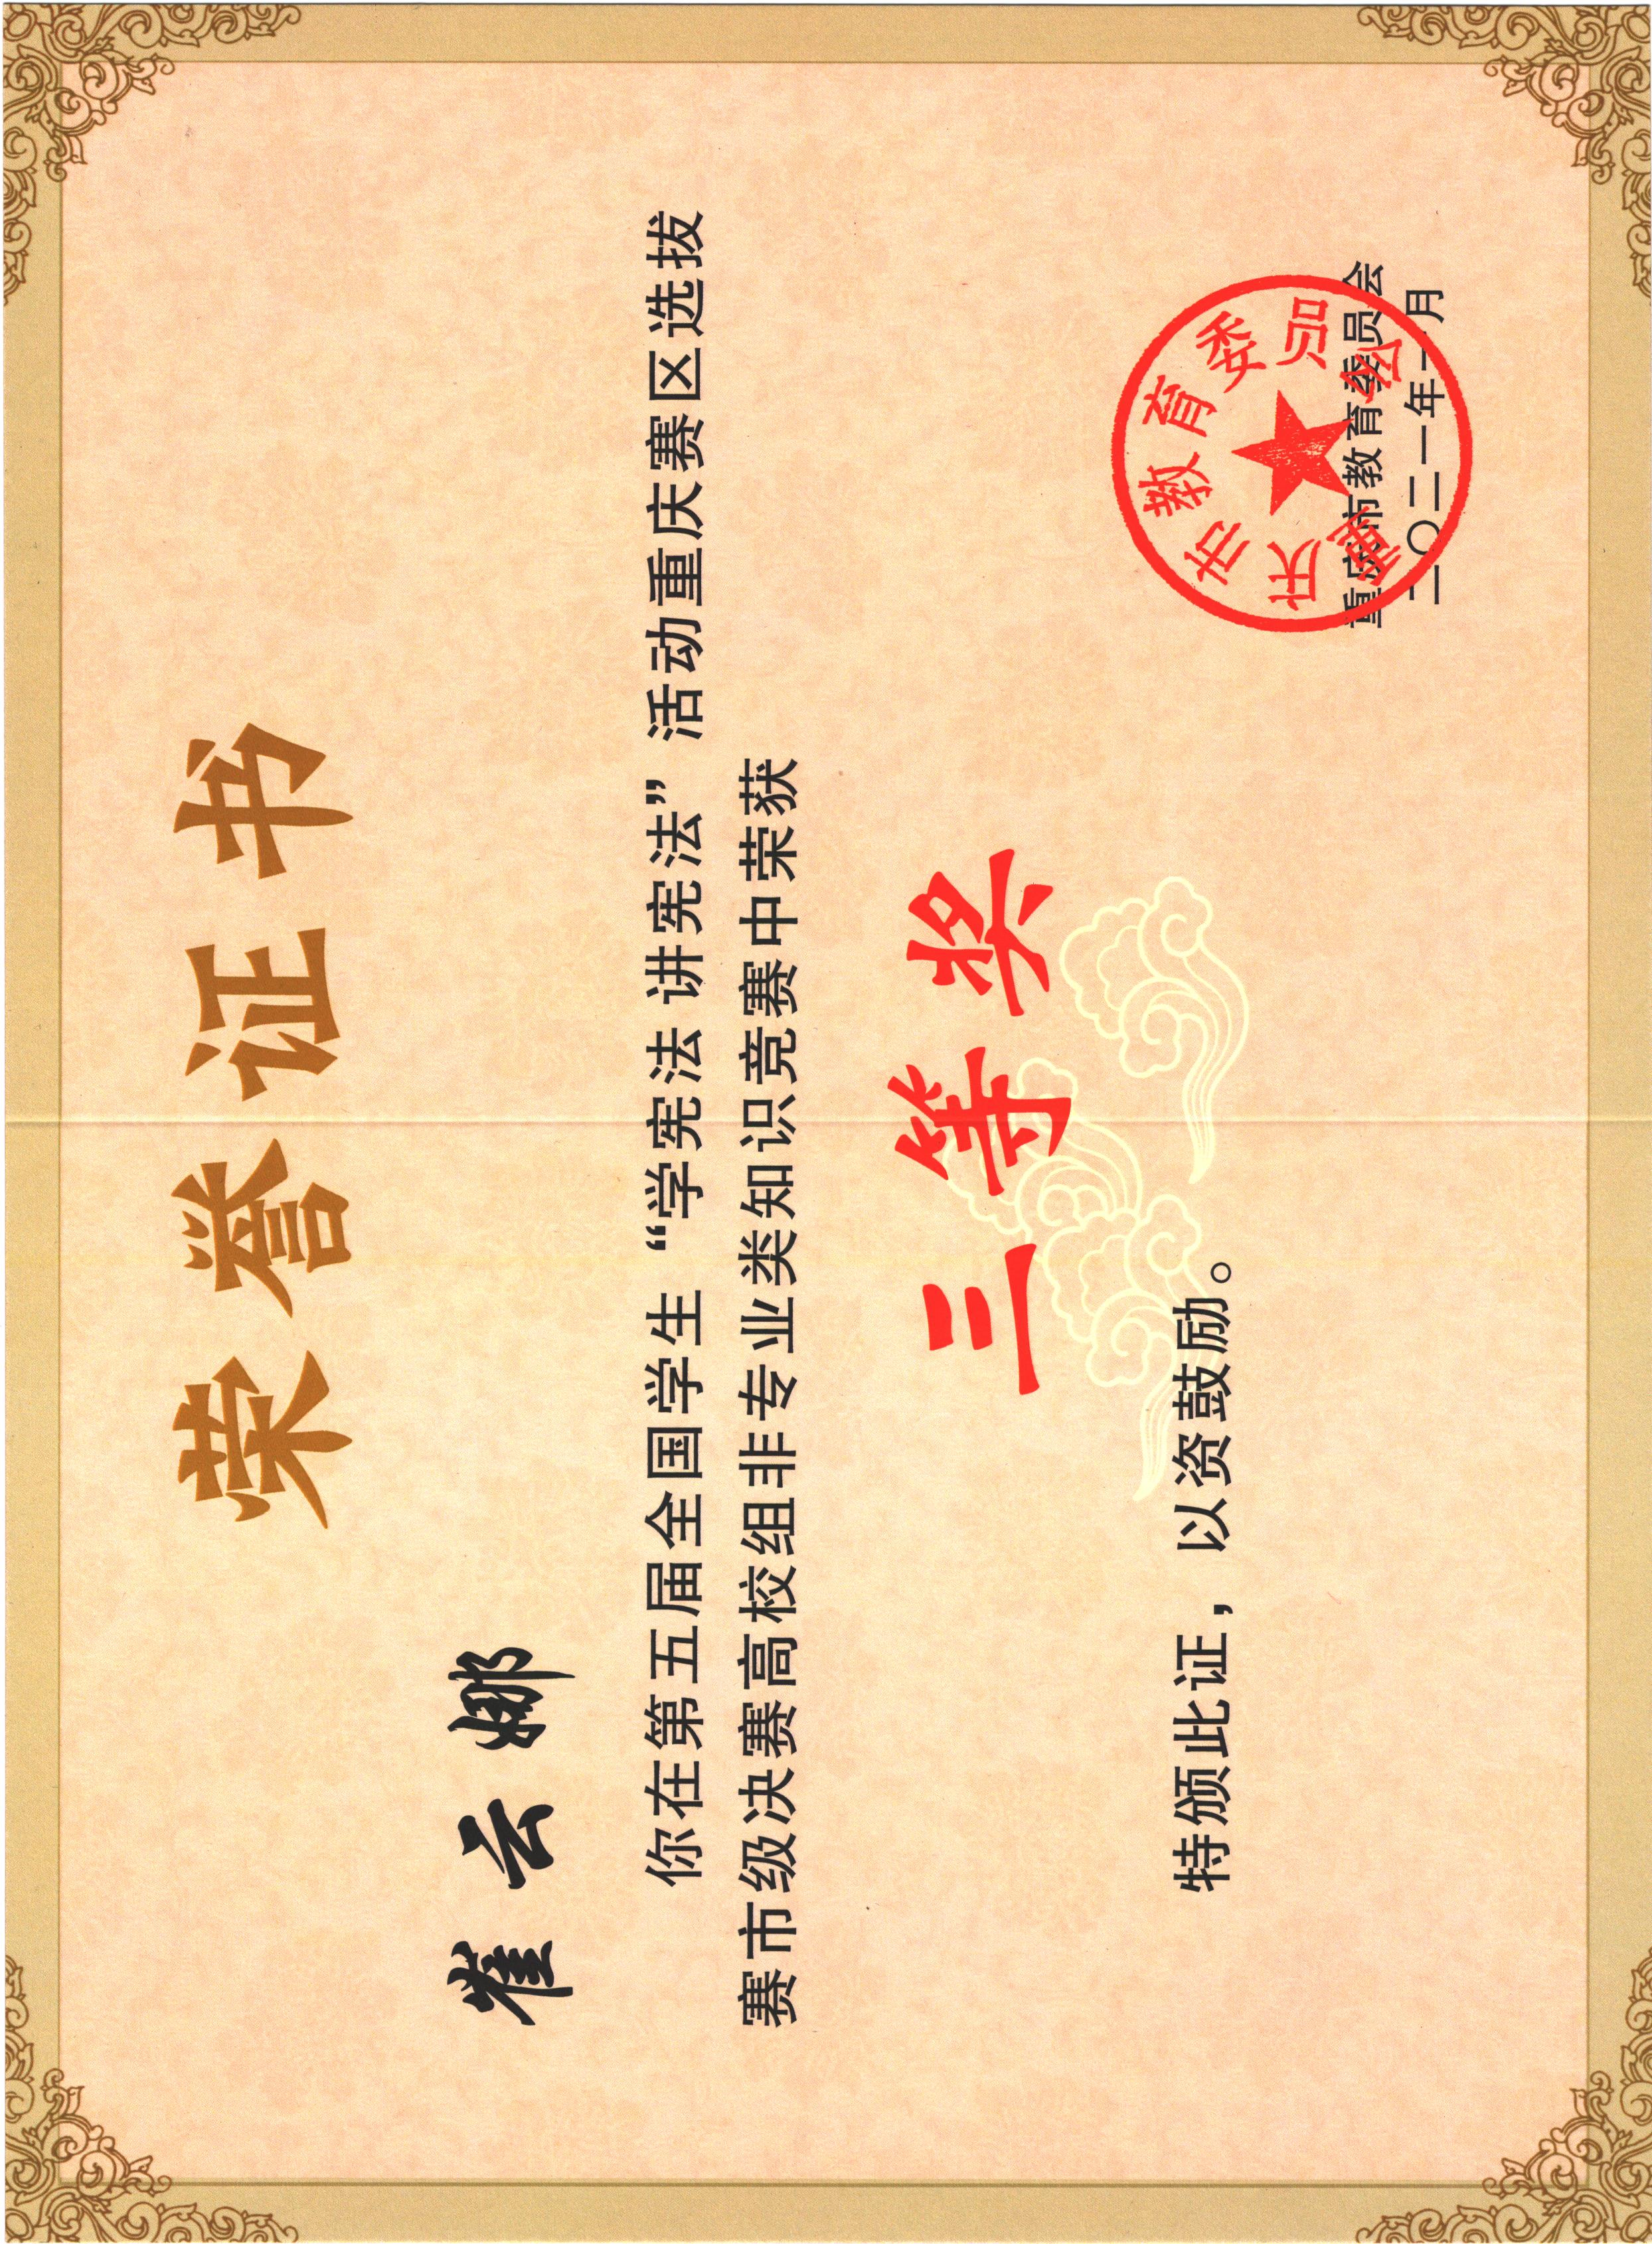 荣誉证书
崔云娜
你在第五届全国学生“学宪法 讲宪法”活动重庆赛区选拔
赛市级决赛高校组非专业类知识竞赛中荣获
三等奖
特颁此证，以资鼓励。
重庆市教育委员会
二〇二一年一月
重庆市教育委员会